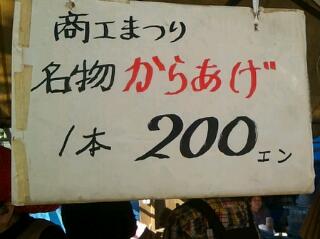 商工まつり
名物からあげ
1本 200エン